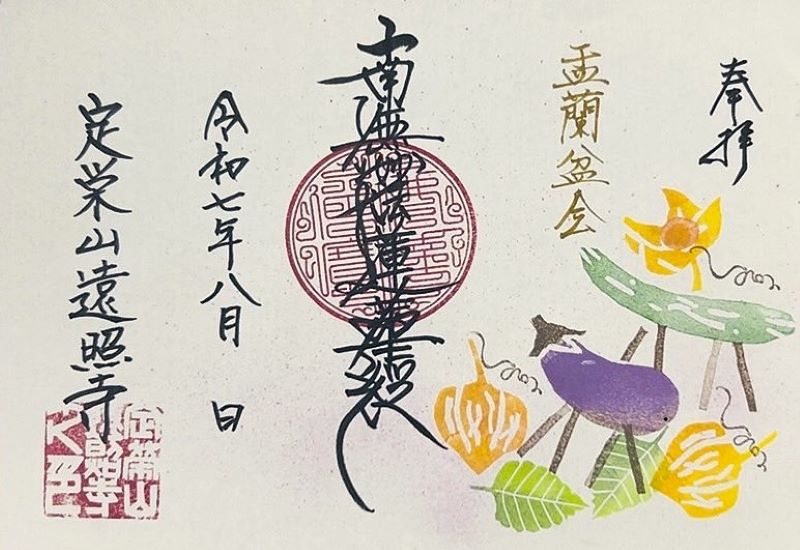 奉拝
盂蘭盆会
南無妙法蓮華経
令和七年八月 日
定栄山遠照寺